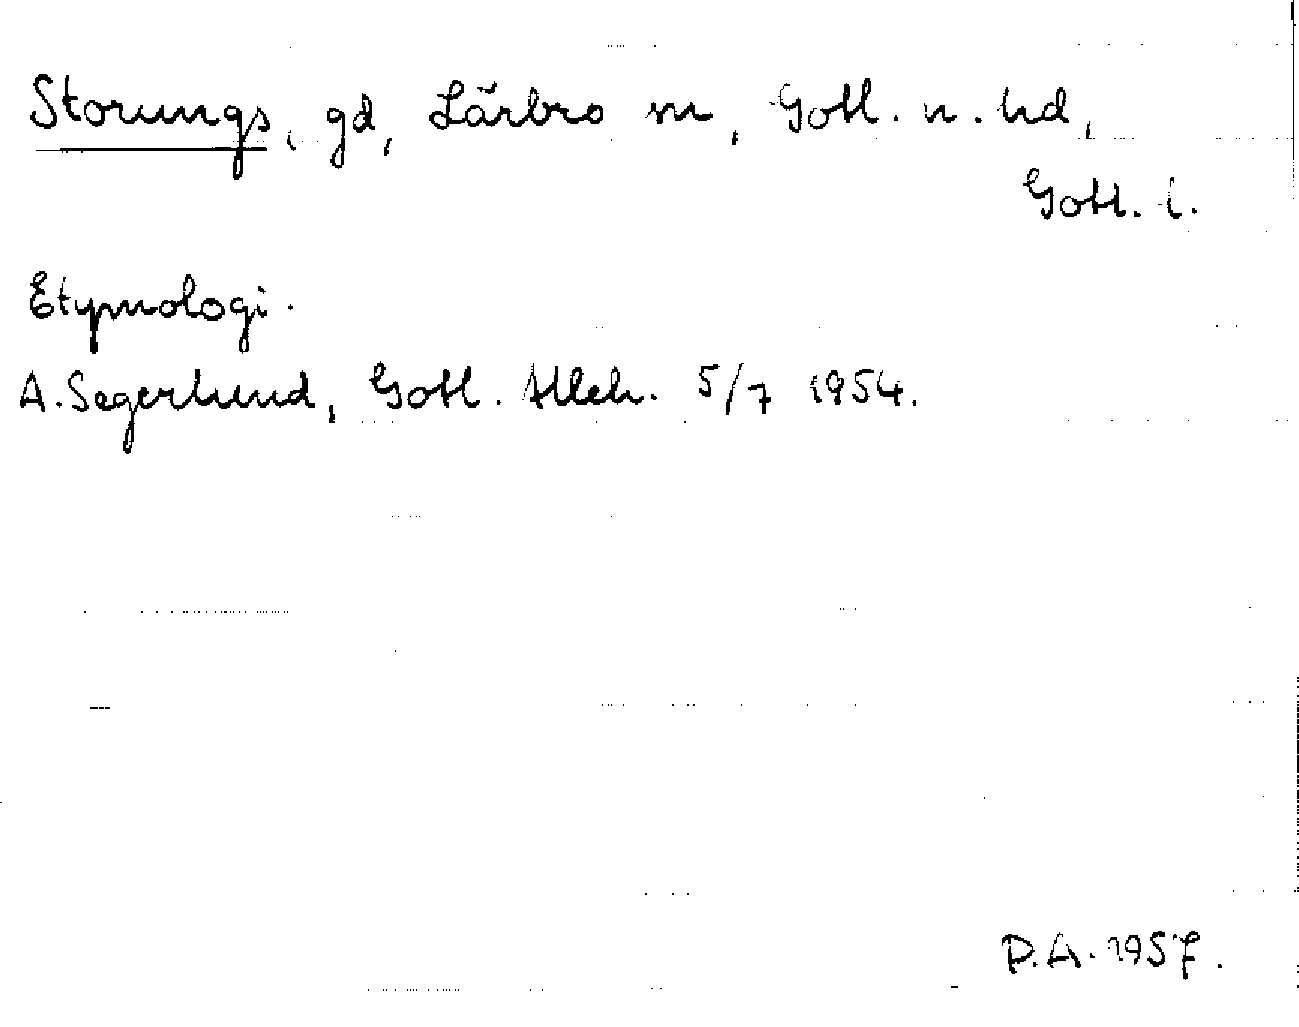 Storungs, gd, Lärbro sn, Gotl. n. hd,
Gotl. l.
Etymologi.
A. Segerlund, Gotl. Alleh. 5/7 1954.
P.A. 1957.